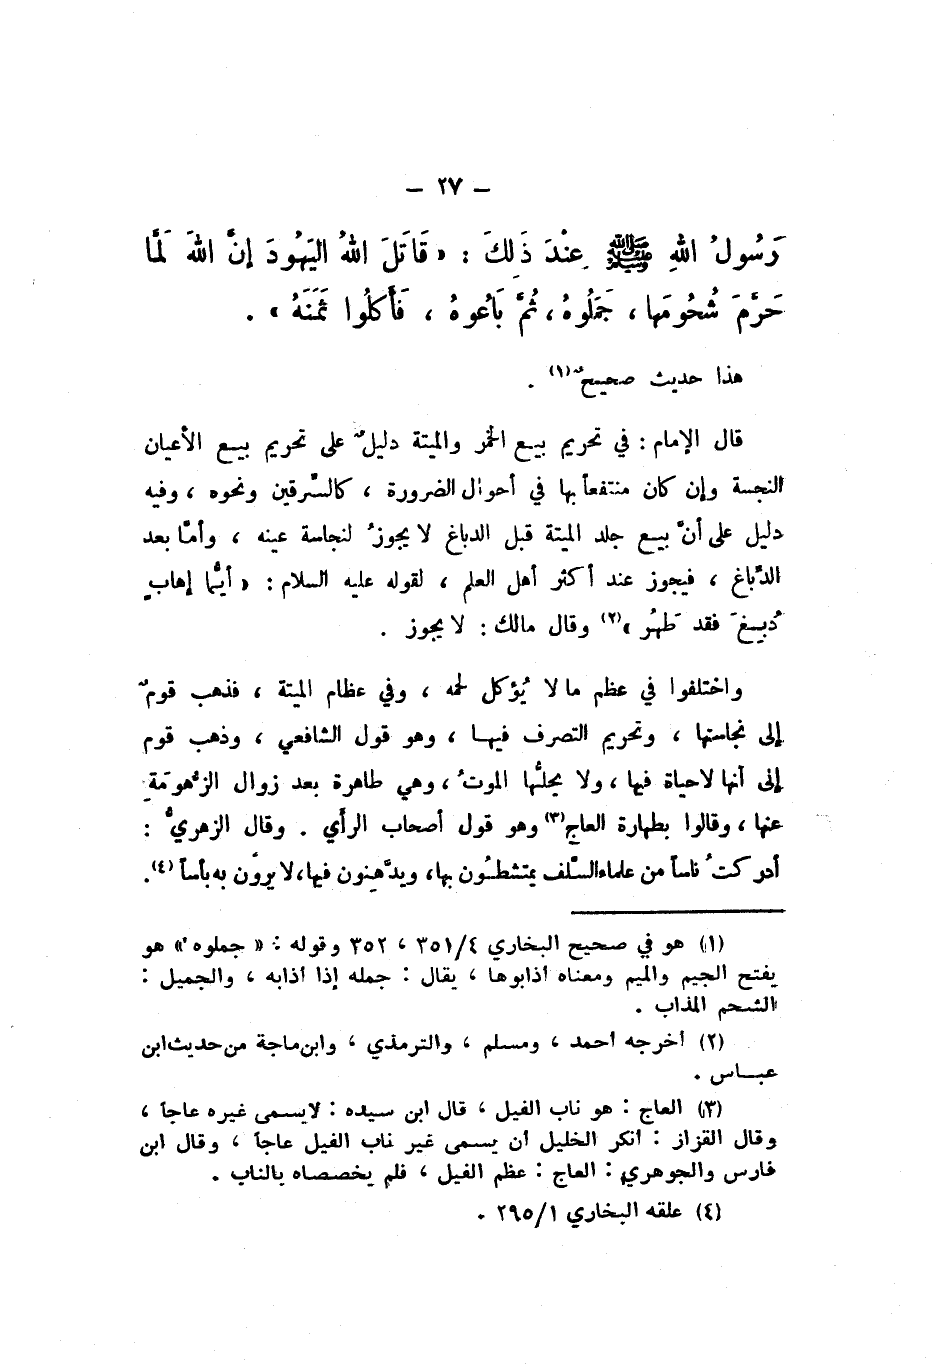 – ٢٧ –
رَسُولُ اللهِ ﷺ عِنْدَ ذَلِكَ : « قَاتَلَ اللهُ اليَهُودَ إنَّ اللهَ لَمَّا
حَرَّمَ شُحُومَهَا ، جَمَلُوهُ ، ثُمَّ بَاعُوهُ ، فَأَكَلُوا ثَمَنَهُ » .
هذا حديث صحيحٌ (١) .
قال الإمام : في تحريم بيع الخمر والميتة دليلٌ على تحريم بيع الأعيان
النجسة وإن كان منتفعاً بها في أحوال الضرورة ، كالسِّرقين ونحوه ، وفيه
دليل على أنَّ بيع جلد الميتة قبل الدباغ لا يجوزُ لنجاسة عينه ، وأمّا بعد
الدِّباغ ، فيجوز عند أكثر أهل العلم ، لقوله عليه السلام : « أيُّما إهابٍ
دُبِغَ فقد طَهُر » (٢) وقال مالك : لا يجوز .
واختلفوا في عظم ما لا يُؤكل لحمه ، وفي عظام الميتة ، فذهب قومٌ
إلى نجاستها ، وتحريم التصرف فيها ، وهو قول الشافعي ، وذهب قوم
إلى أنها لا حياة فيها ، ولا يحلُّها الموتُ ، وهي طاهرة بعد زوال الزُّهومَةِ
عنها ، وقالوا بطهارة العاج (٣) وهو قول أصحاب الرأي . وقال الزهريُّ :
أدركتُ ناساً من علماء السَّلف يمتشطُون بها ، ويدَّهِنون فيها ، لا يروْن به بأساً (٤) .
(١) هو في صحيح البخاري ٣٥١/٤ ، ٣٥٢ وقوله : « جملوه » هو
بفتح الجيم والميم ومعناه أذابوها ، يقال : جمله إذا أذابه ، والجميل :
الشحم المذاب .
(٢) أخرجه أحمد ، ومسلم ، والترمذي ، وابن ماجة من حديث ابن
عبـاس .
(٣) العاج : هو ناب الفيل ، قال ابن سيده : لايسمى غيره عاجاً ،
وقال القزاز : أنكر الخليل أن يسمى غير ناب الفيل عاجاً ، وقال ابن
فارس والجوهري : العاج : عظم الفيل ، فلم يخصصاه بالناب .
(٤) علقه البخاري ٢٩٥/١ .